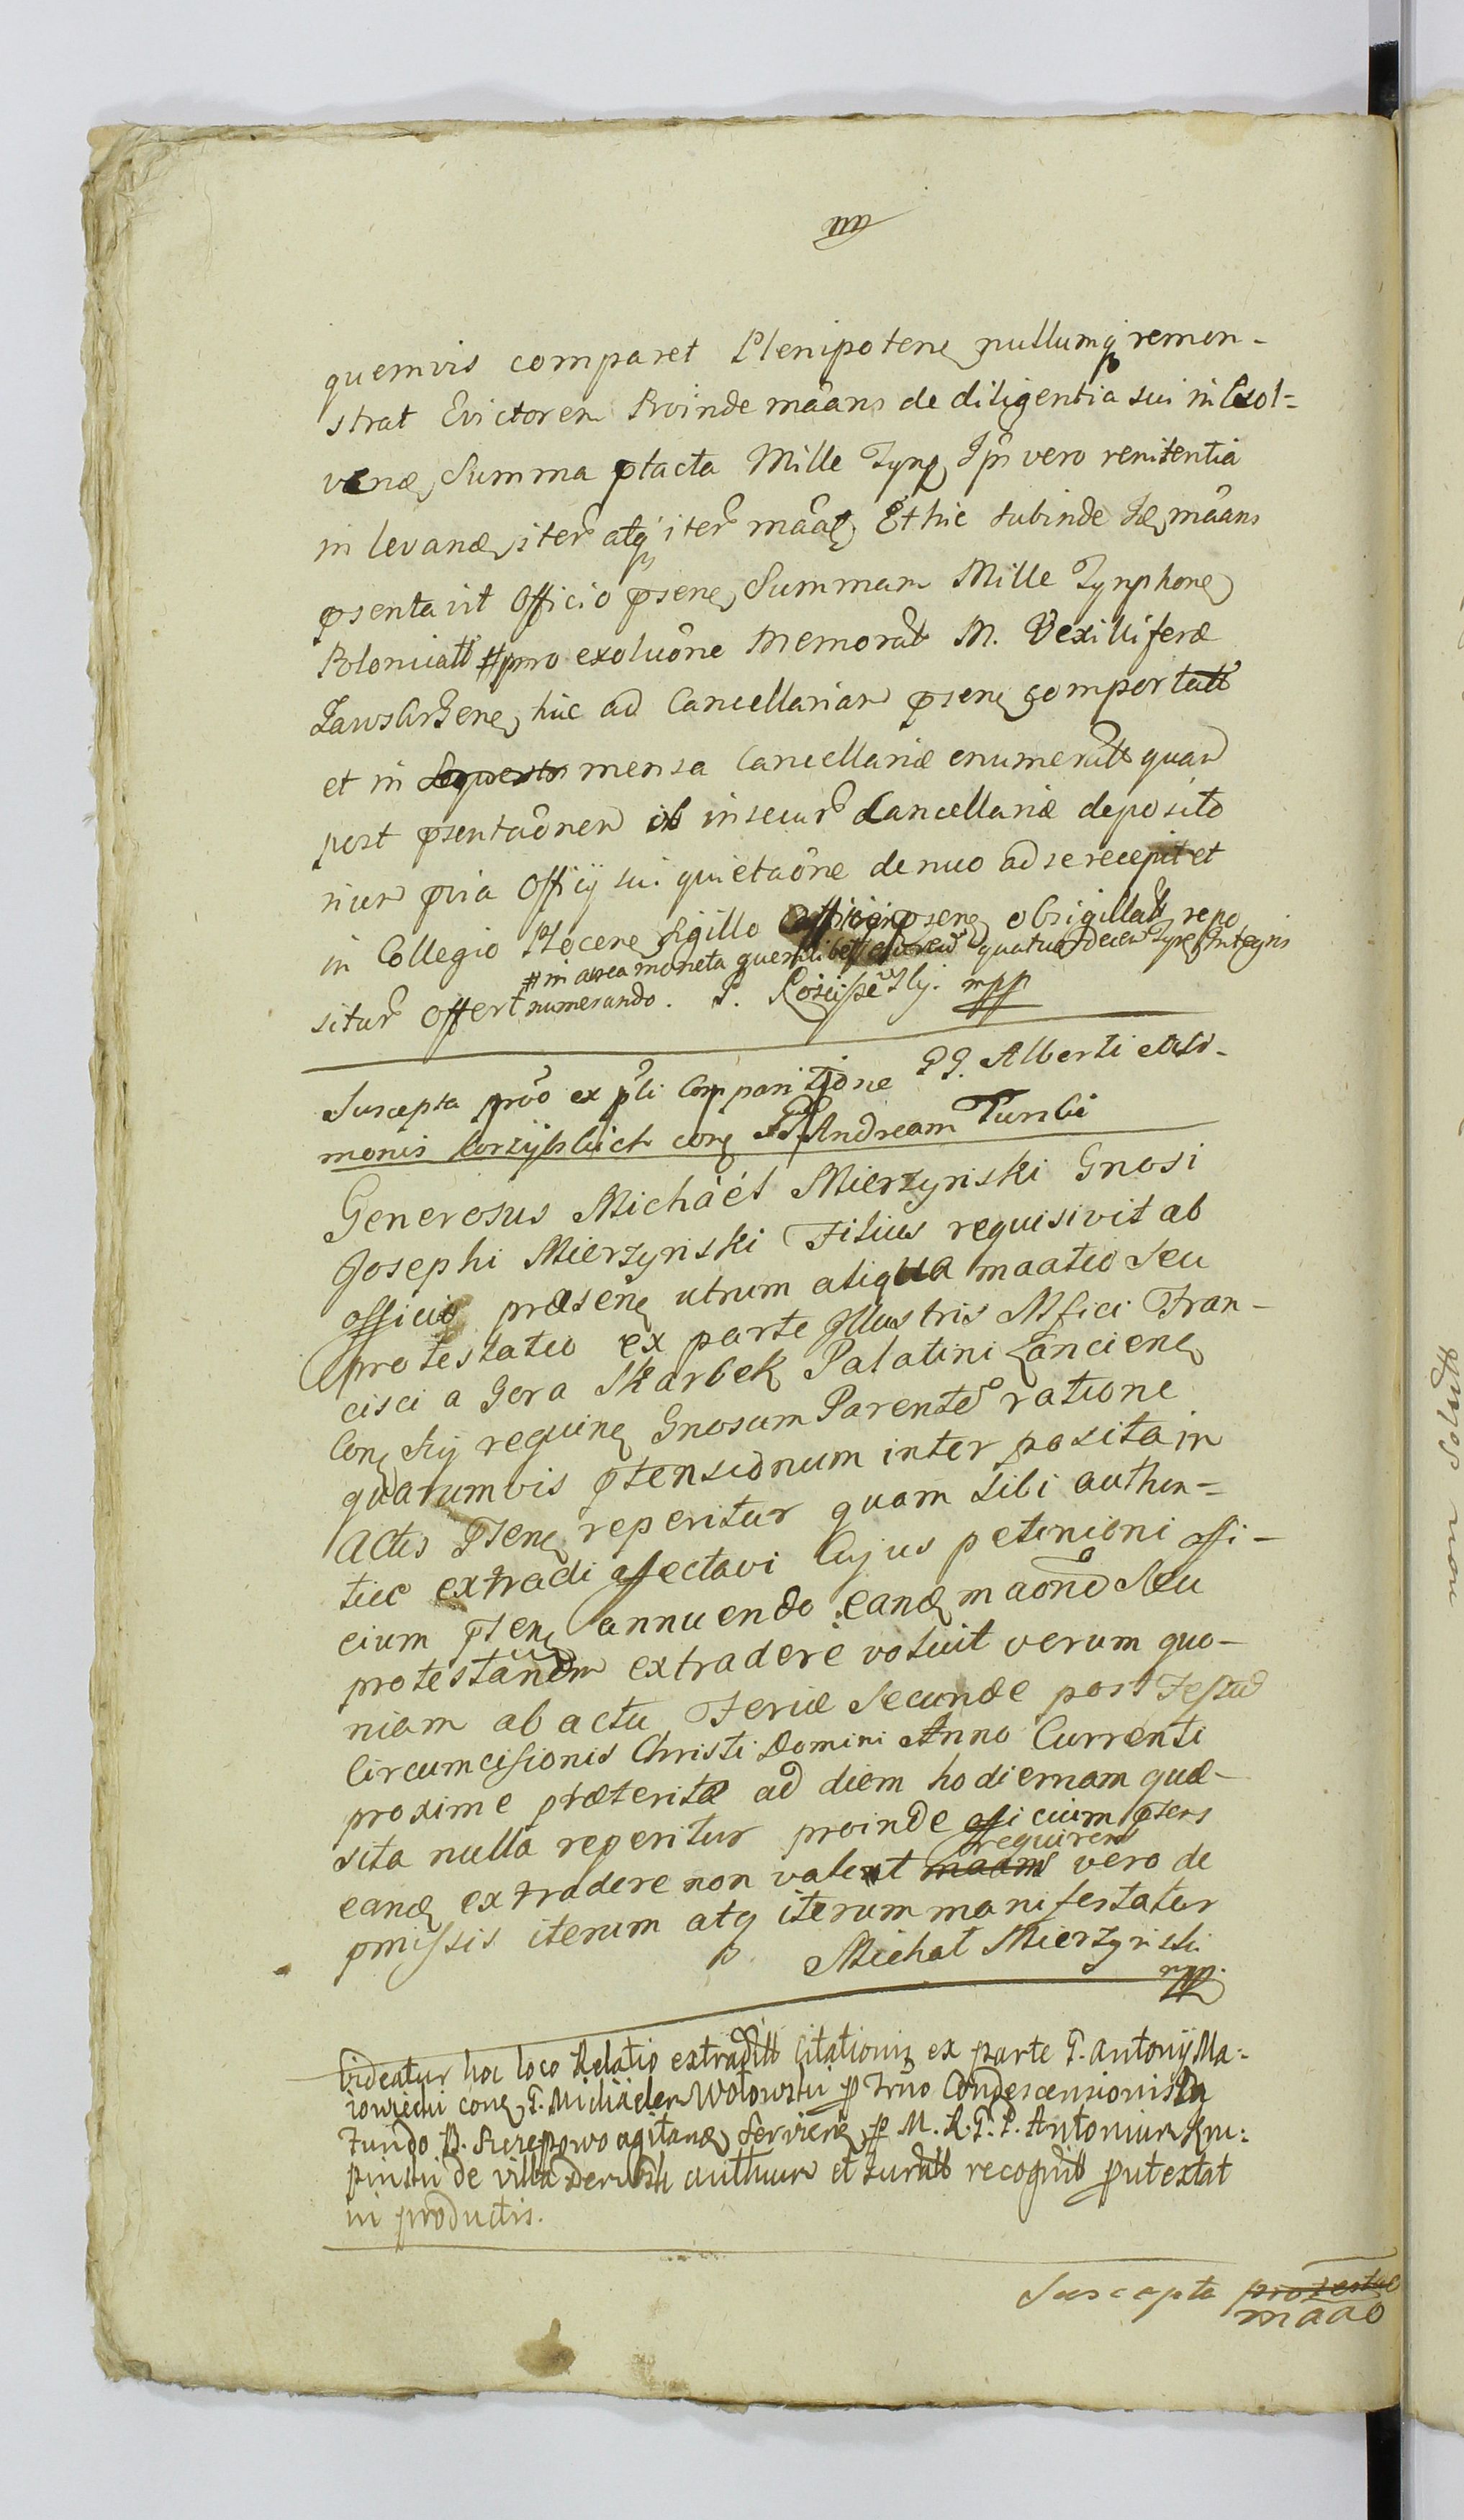 quemvis comparet Plenipotene nullumq remon-
strat Evictorem Proinde mãans de diligentia sui in Exol-
venᵭ Summa ptacta Mille Tynp Ipi vero renitentia
in levanᵭ iter atq iter mãat Et hic subinde Id mãans
psentavit Officio psenę Summam Mille Tynphonę
Poloniatt # pro exoluõne Memorat M. Vexilliferæ
hic ad Cancellariam psenę comportatt
et in mensa Cancellariæ enumeratt quam
post psentaõnem ob insecur Cancellariæ deposito
rium pvia Officij sui quietaõne denuo ad se recepit et
in Collegio Plocenę sigillo Officij psenę obsigillatt repo
# in moneta quemlibet quatuordecem Integris
situr offert numerando. P. mpp
Suscepta prõ ex pti Comparitione PP. Alberti et Si-
monis conę Andream Turski
Generosus Michaël Mierzyński Gnosi
Josephi Mierzynski Filius requisivit ab
officio præsenę utrum aliqua maatio seu
protestatio ex parte Illustris Mfici Fran-
cisci a Gora Skarbek Palatini Lancienę
Conę requirenę Gnosum Parente ratione
quarumvis ptensionum interposita in
Actis psenę reperitur quam sibi authen-
tice extradi affectavi Cujus petitioni offi-
cium psenę annuendo eanᵭ maonẽ seu
protestãnem extradere voluit verum quo-
niam ab actu Feriæ Secundæ post Festum
Circumcisionis Christi Domini Anno Currenti
proxime præteritæ ad diem hodiernam quæ-
sita nulla reperitur proinde officium psens
requirens
eanᵭ extradere non valent maans vero de
pmissis iterum atq iterum manifestatur
Michał Mierzynski
mpp.
Videatur hoc loco Relatio extraditt Citationis ex parte G. Antonij Ma-
iowiecki conę G. Michäelem Wołowski p Trno Condescensionis in
Fundo B. agitanᵭ Servienę p M. R. G. P. Antonium Kru-
pinski de villa authum et juratt recognitt put extat
in productis.
Suscepta protestao
maao
non solutt